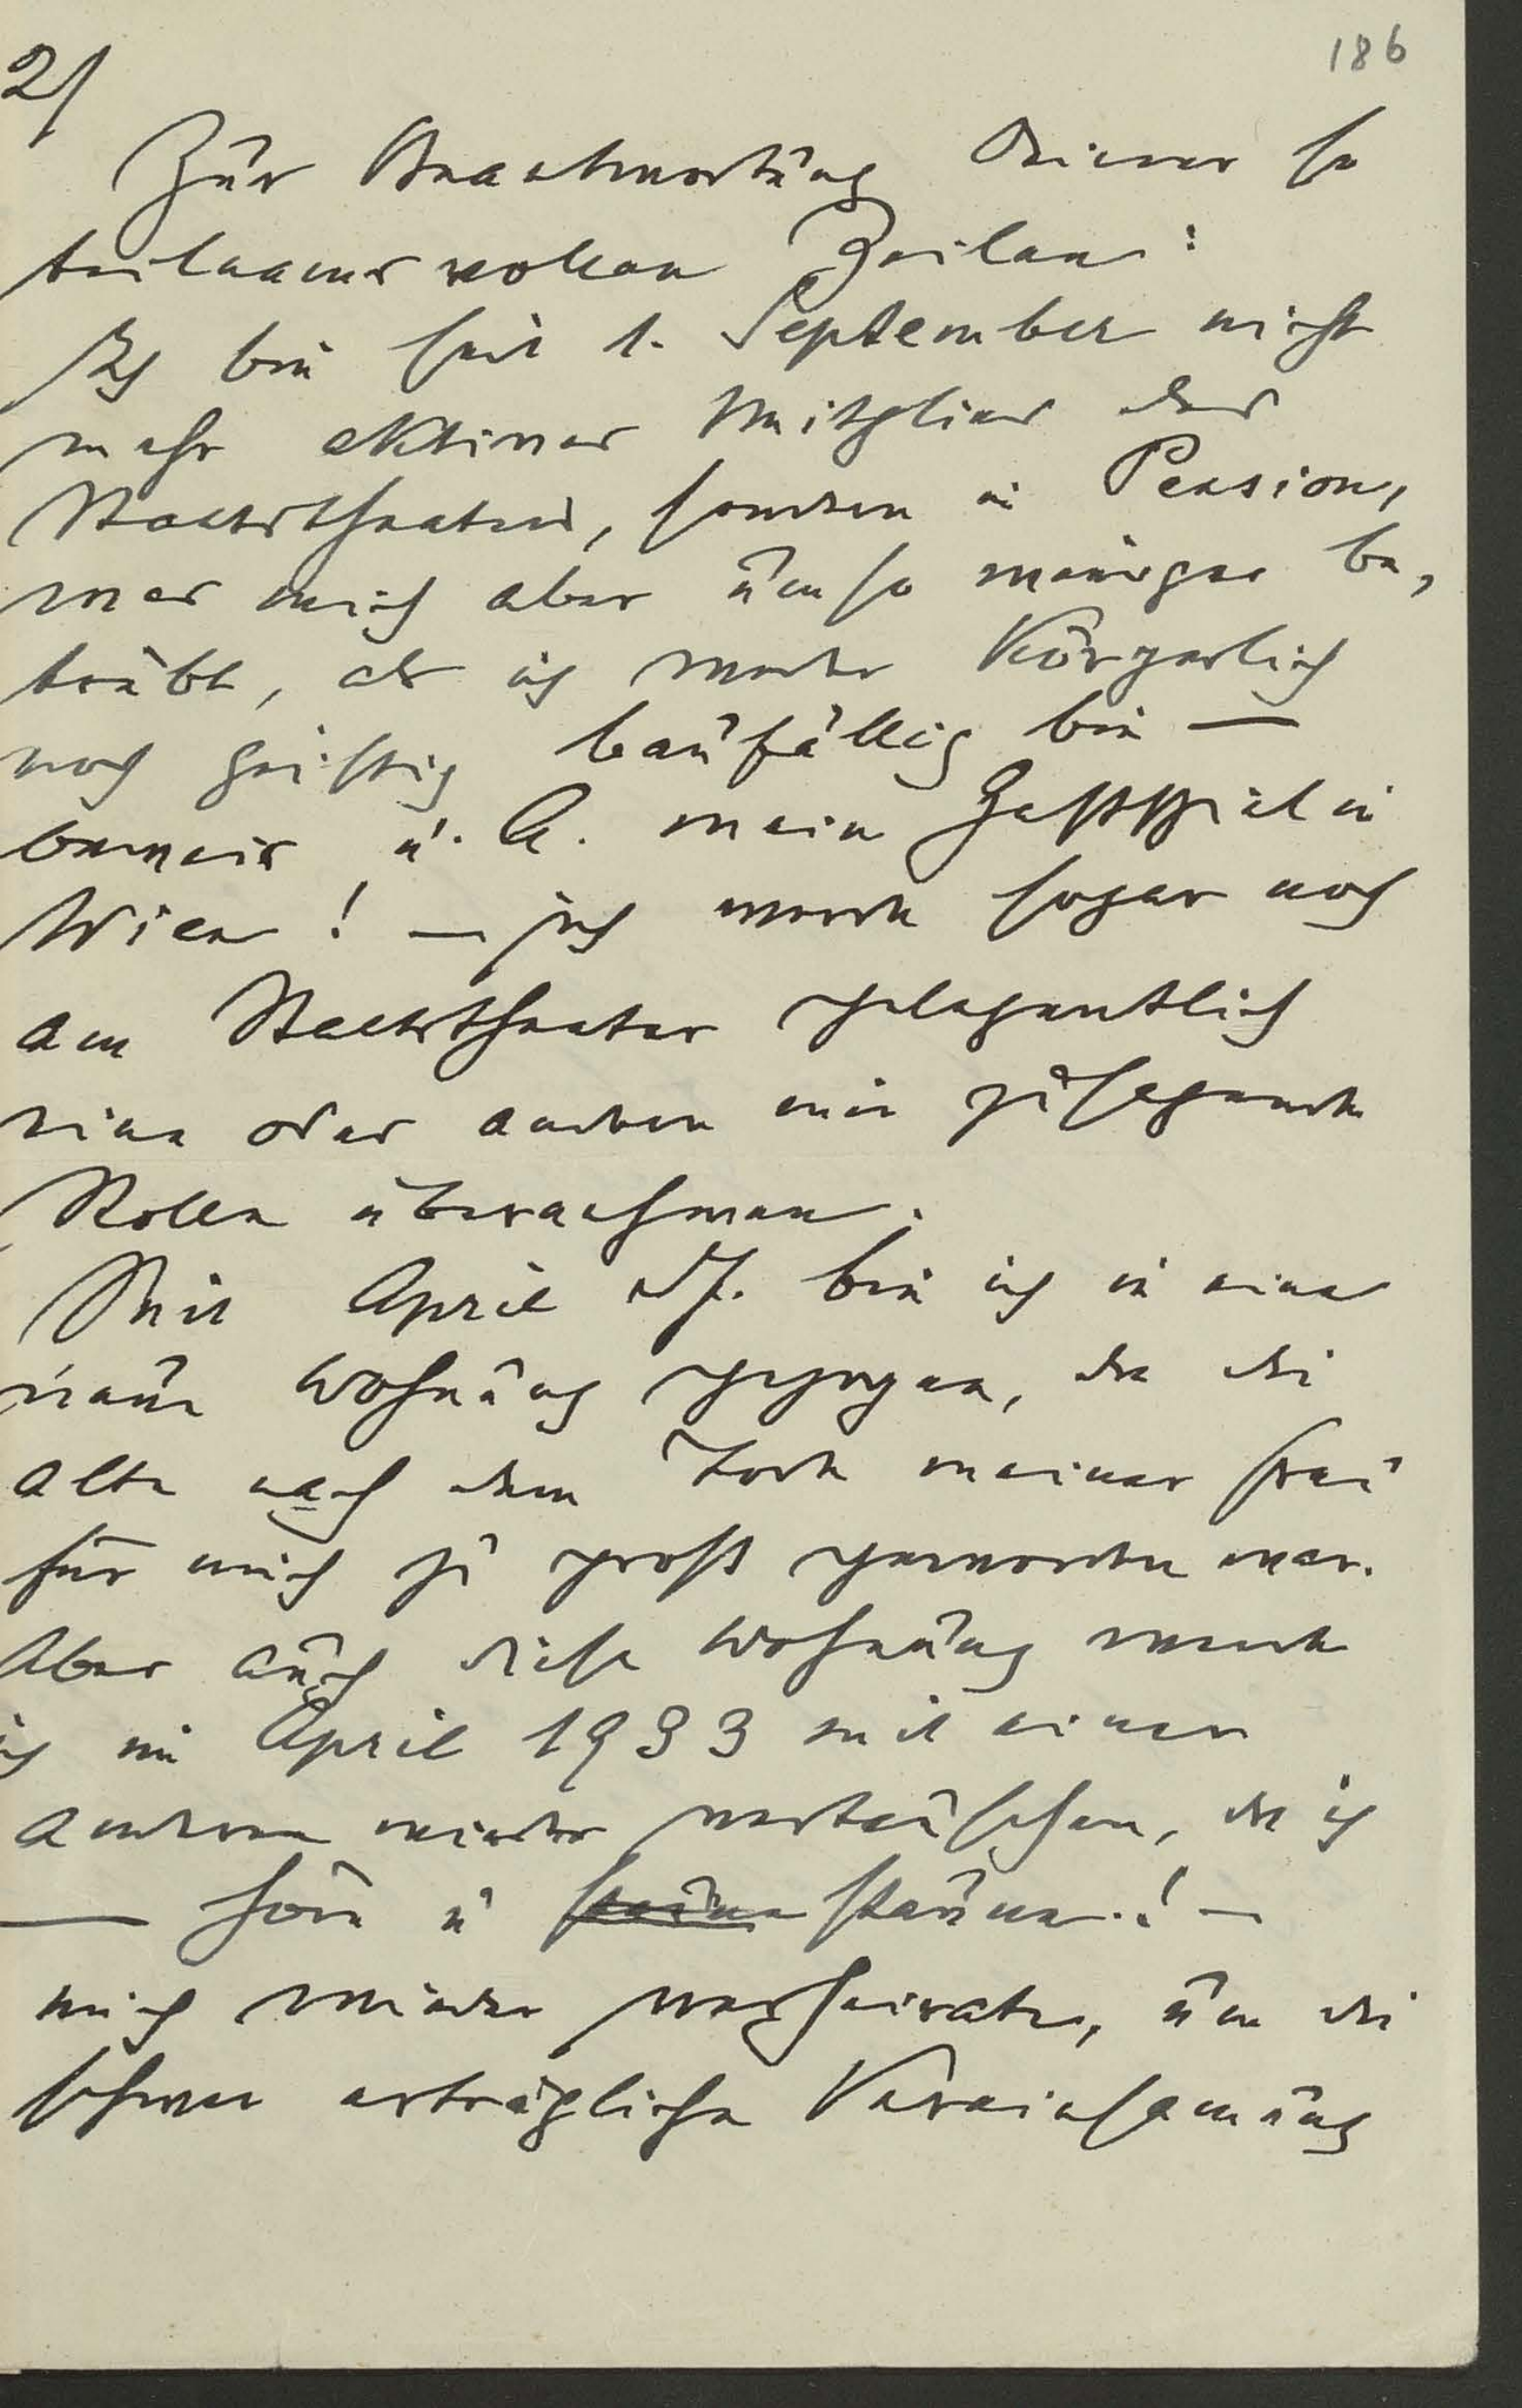 186
2/
Zur Beantwortung Deiner so
teilnamsvollen Zeilen:
Ich bin seit 1. September nicht
mehr aktives Mitglied des
Staatstheaters, sondern in Pension,
was mich aber umso weniger be,
trübt, als ich weder körperlich
noch geistig baufällig bin —
beweis u. A. mein Gastspiel in
Wien! — ich werde sogar noch
am Staatstheater gelegentlich
eine oder andere mir zusagende
Rolle übernehmen.
Seit April dJ. bin ich in eine
neue Wohnung gezogen, da die
alte nach dem Tode meiner Frau
für mich zu groß geworden war.
Aber auch diese Wohnung werde
ich im April 1933 mit einer
anderen wieder vertauschen, da ich
— höre u staune staune! —
mich wieder verheirate, um die
schwer erträgliche Vereinsamung